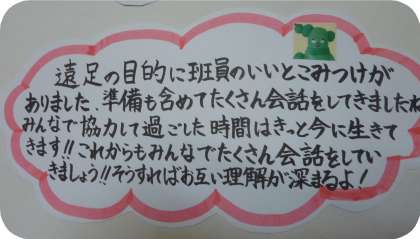 遠足の目的に班員のいいとこみつけが
ありました。準備も含めてたくさん会話をしてきましたね
みんなで協力して過ごした時間はきっと今に生きて
きます!!これからもみんなでたくさん会話をしてい
きましょう!!そうすればお互い理解が深まるよ!